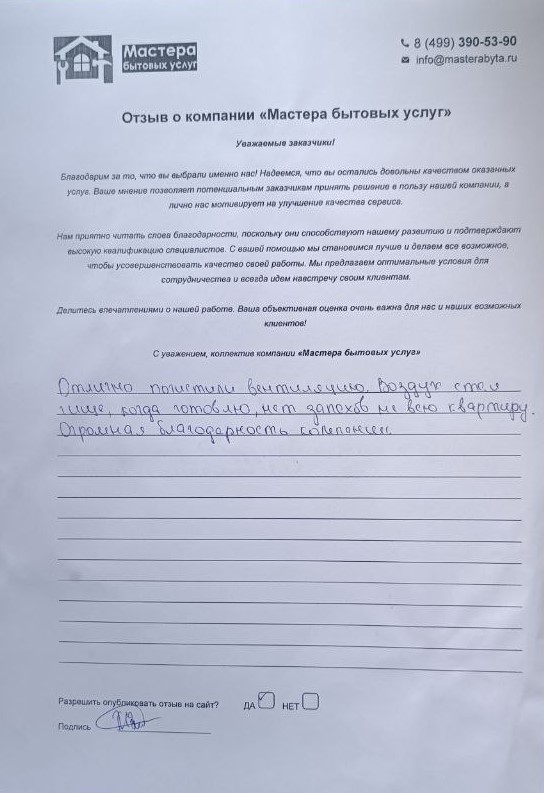 Мастера
бытовых услуг
8 (499) 390-53-90
info@masterabyta.ru
Отзыв о компании «Мастера бытовых услуг»
Уважаемые заказчики!
Благодарим за то, что вы выбрали именно нас! Надеемся, что вы остались довольны качеством оказанных
услуг. Ваше мнение позволяет потенциальным заказчикам принять решение в пользу нашей компании, а
лично нас мотивирует на улучшение качества сервиса.
Нам приятно читать слова благодарности, поскольку они способствуют нашему развитию и подтверждают
высокую квалификацию специалистов. С вашей помощью мы становимся лучше и делаем все возможное,
чтобы усовершенствовать качество своей работы. Мы предлагаем оптимальные условия для
сотрудничества и всегда идем навстречу своим клиентам.
Делитесь впечатлениями о нашей работе. Ваша объективная оценка очень важна для нас и наших возможных
клиентов!
С уважением, коллектив компании «Мастера бытовых услуг»
Отлично почистили вентиляцию. Воздух стал
чище, когда готовлю, нет запахов на всю квартиру.
Огромная благодарность компании.
Разрешить опубликовать отзыв на сайт? ДА НЕТ
Подпись